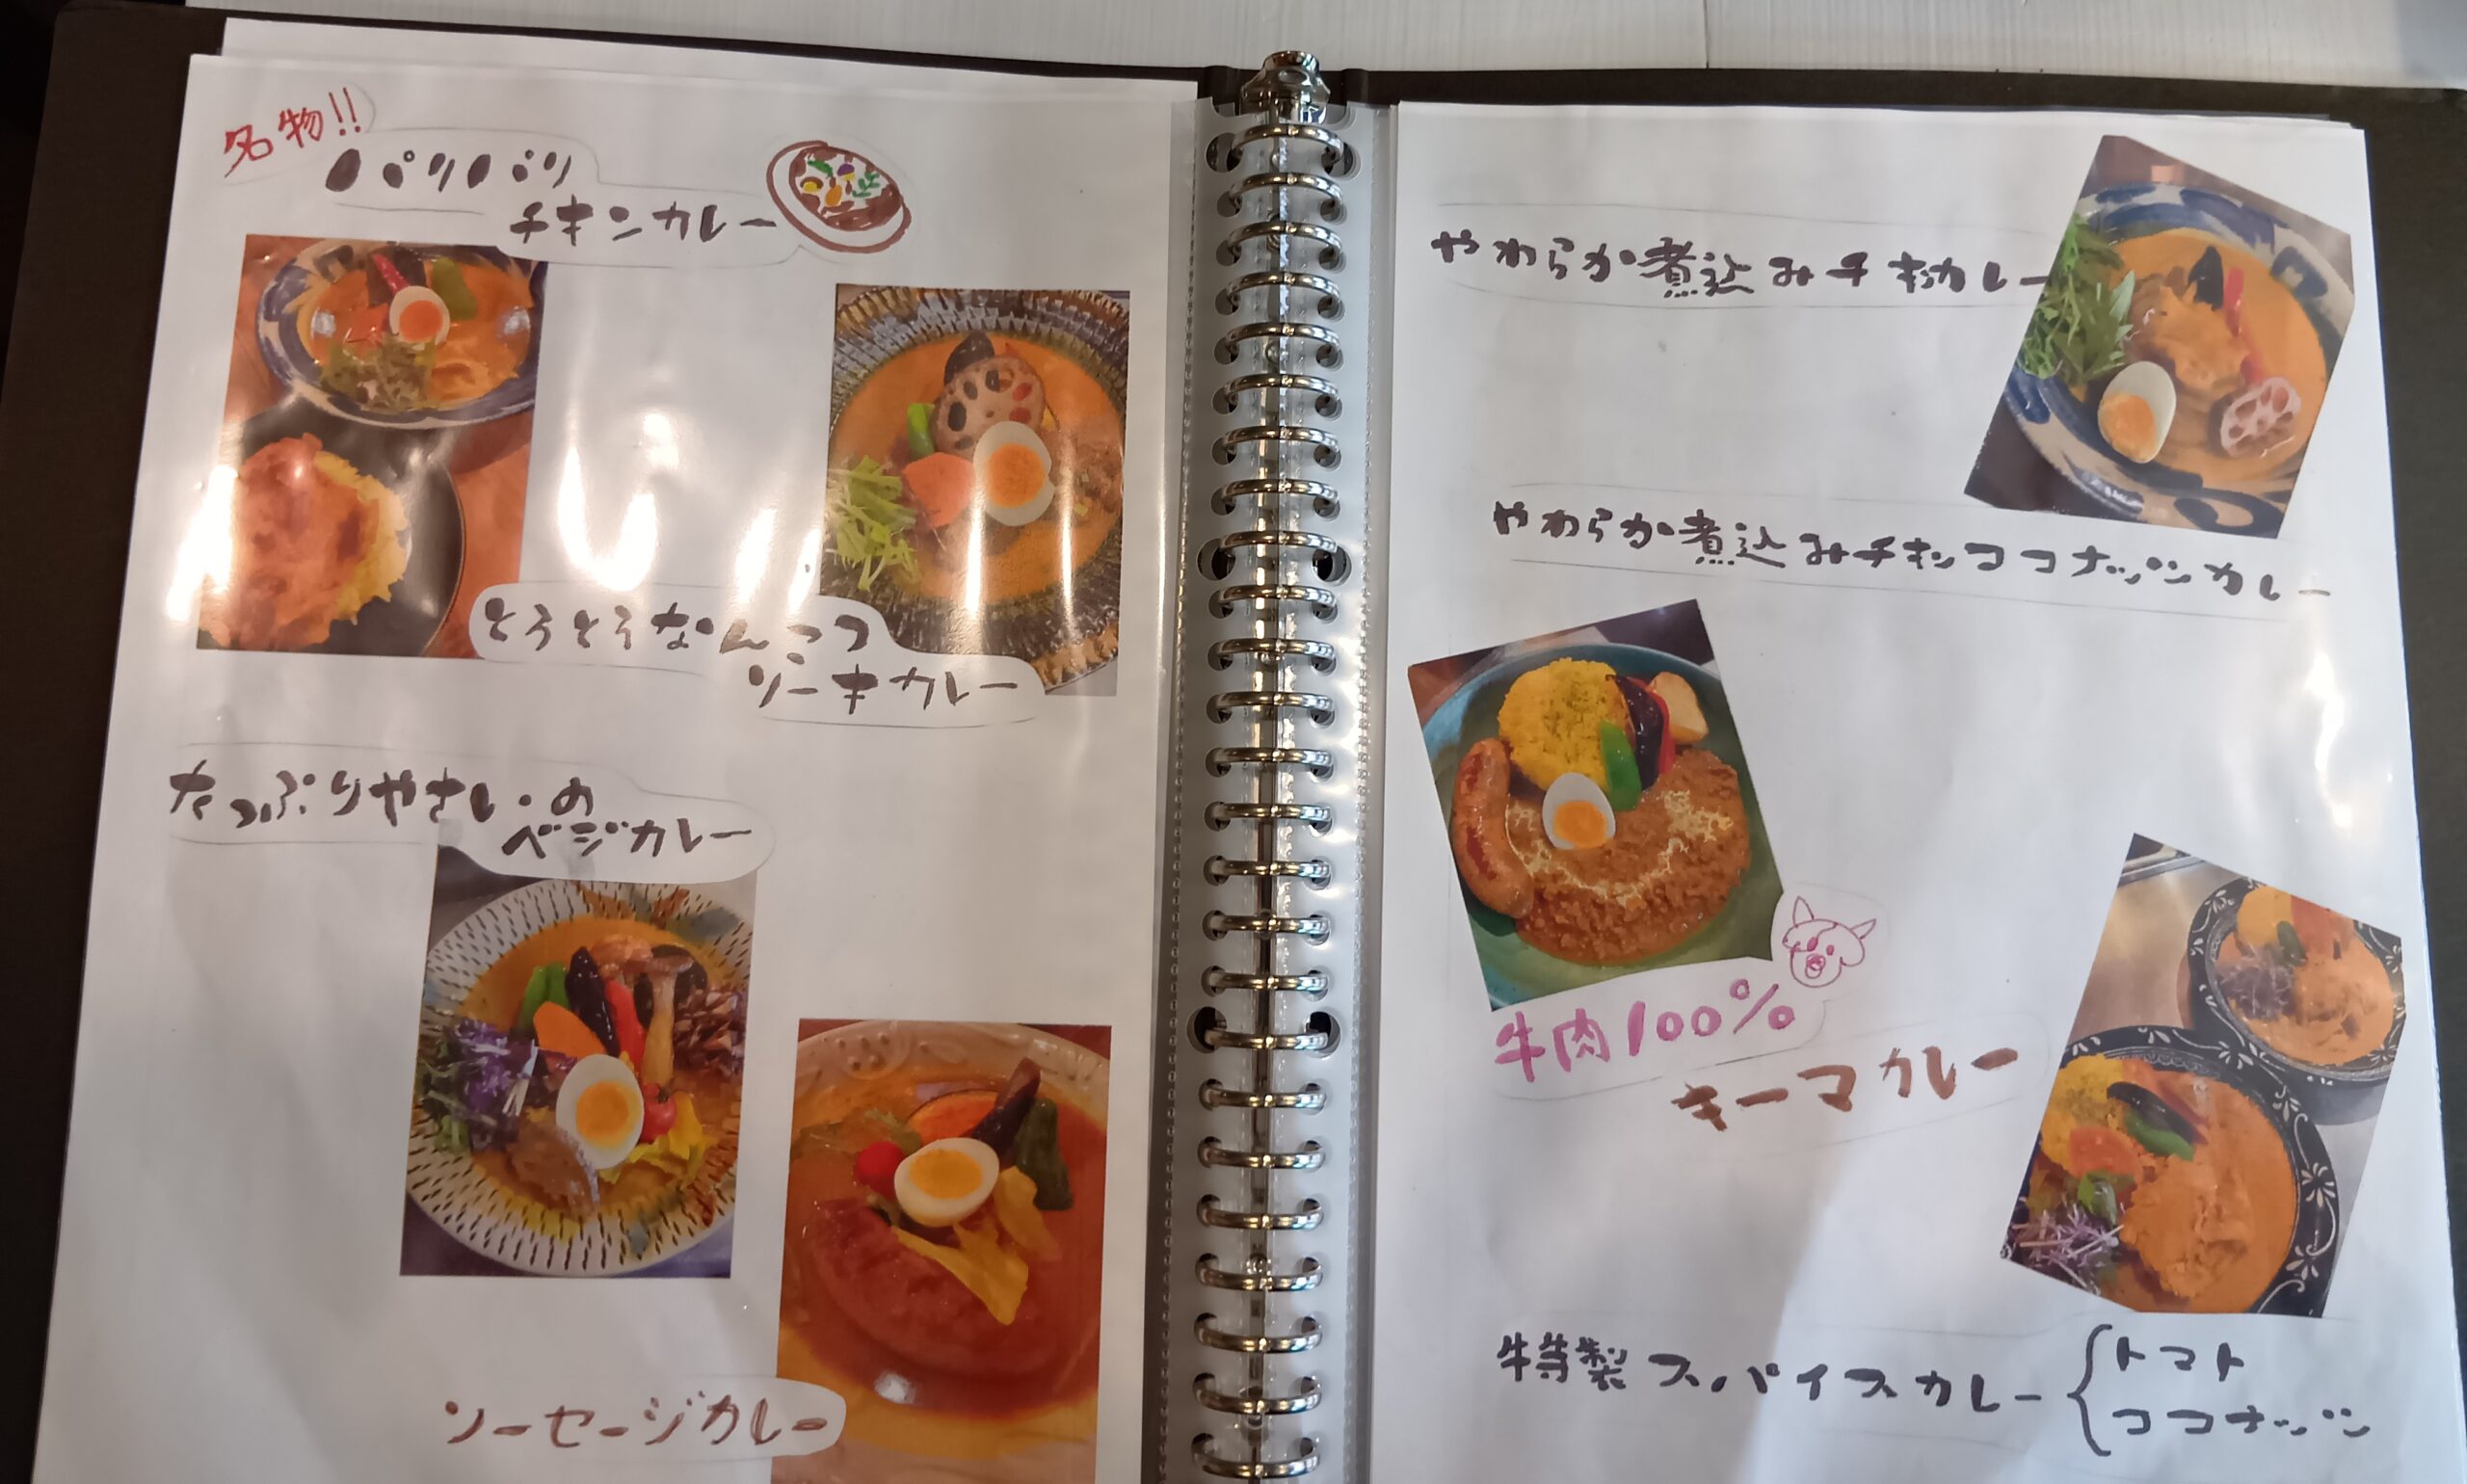 名物!!
パリパリ
チキンカレー
とろとろなんこつ
ソーキカレー
たっぷりやさいの
ベジカレー
ソーセージカレー
やわらか煮込みチキンカレー
やわらか煮込みチキンココナッツカレー
牛肉100%
キーマカレー
特製スパイスカレー
トマト
ココナッツ